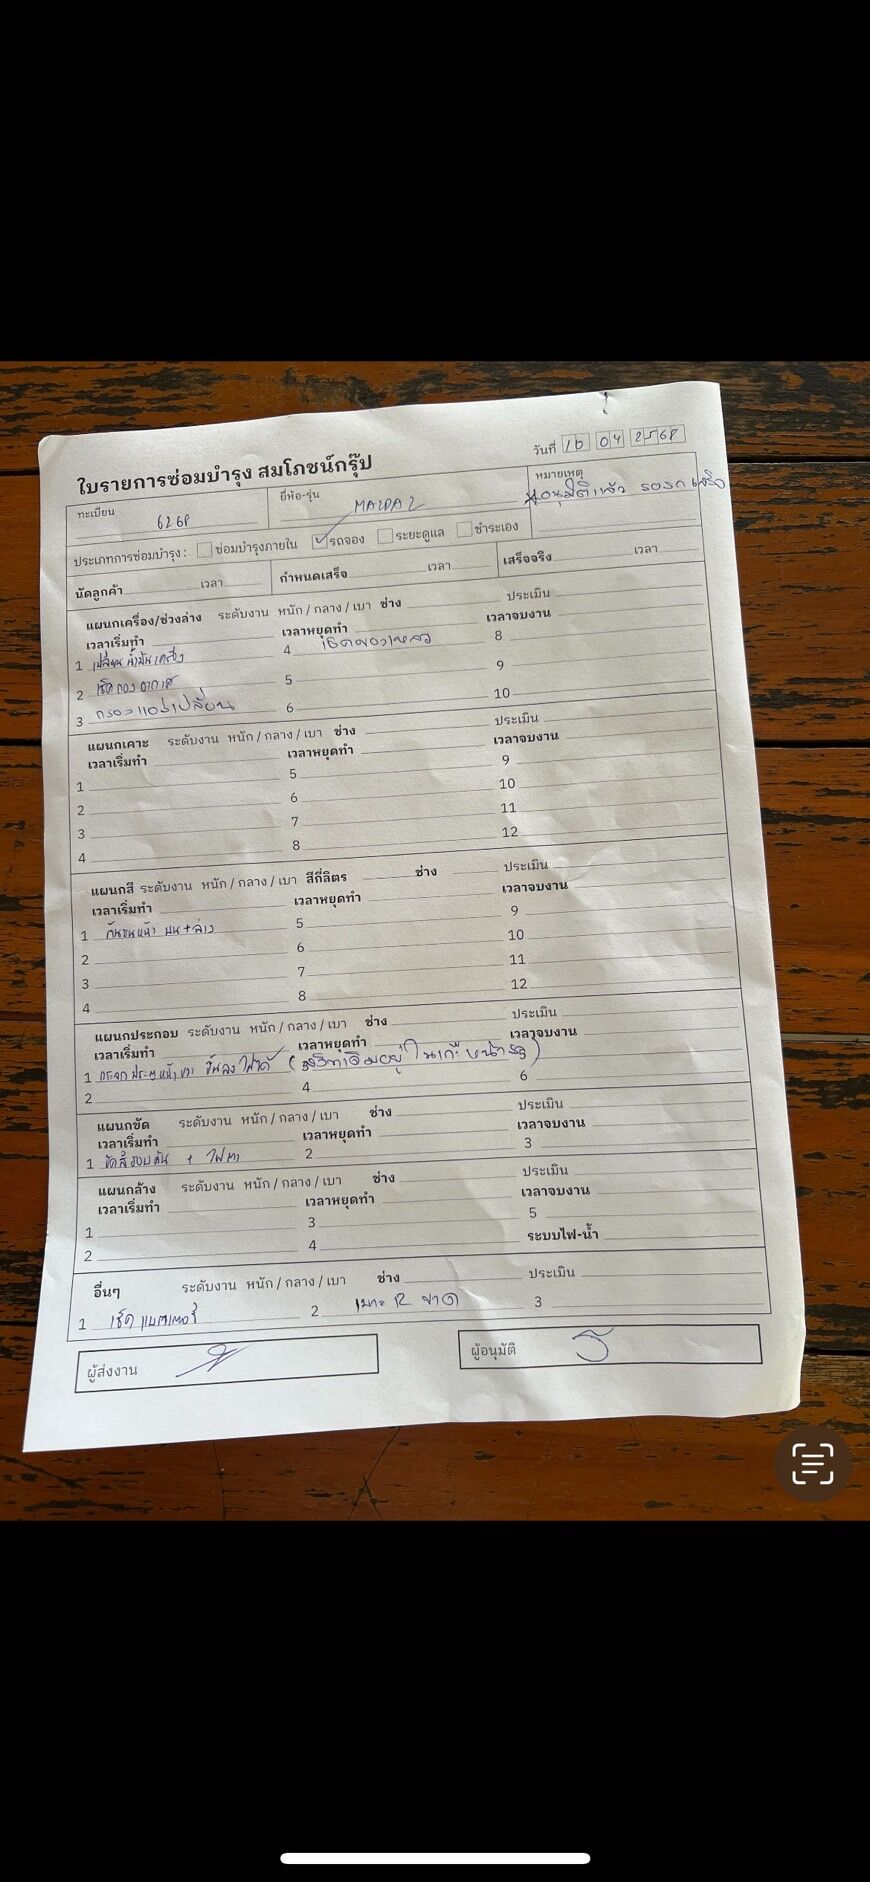 ใบรายการซ่อมบำรุง สมโภชน์กรุ๊ป
วันที่ 16 04 2568
ทะเบียน 6268
ยี่ห้อ-รุ่น MAZDA 2
หมายเหตุ
*อนุมัติแล้ว รอรถเสร็จ
ประเภทการซ่อมบำรุง : ซ่อมบำรุงภายใน ✓ รถจอง ระยะดูแล ชำระเอง
นัดลูกค้า เวลา กำหนดเสร็จ เวลา เสร็จจริง เวลา
แผนกเครื่อง/ช่วงล่าง ระดับงาน หนัก / กลาง / เบา ช่าง ประเมิน
เวลาเริ่มทำ เวลาหยุดทำ เวลาจบงาน
1 เปลี่ยนน้ำมันเครื่อง 4 เช็คของเหลว 8
2 เช็คกรองอากาศ 5 9
3 กรองแอร์เปลี่ยน 6 10
แผนกเคาะ ระดับงาน หนัก / กลาง / เบา ช่าง ประเมิน
เวลาเริ่มทำ เวลาหยุดทำ เวลาจบงาน
1 5 9
2 6 10
3 7 11
4 8 12
แผนกสี ระดับงาน หนัก / กลาง / เบา สีกี่ลิตร ช่าง ประเมิน
เวลาเริ่มทำ เวลาหยุดทำ เวลาจบงาน
1 กันชนหน้า บน + ล่าง 5 9
2 6 10
3 7 11
4 8 12
แผนกประกอบ ระดับงาน หนัก / กลาง / เบา ช่าง ประเมิน
เวลาเริ่มทำ เวลาหยุดทำ เวลาจบงาน
1 กระจกประตูหน้าขวา ขึ้นลงไม่ได้ หน้ารถ)
2 4 6
แผนกขัด ระดับงาน หนัก / กลาง / เบา ช่าง ประเมิน
เวลาเริ่มทำ เวลาหยุดทำ เวลาจบงาน
1 ขัดสีรอบคัน + ไฟตา 2 3
แผนกล้าง ระดับงาน หนัก / กลาง / เบา ช่าง ประเมิน
เวลาเริ่มทำ เวลาหยุดทำ เวลาจบงาน
1 3 5
2 4 ระบบไฟ-น้ำ
อื่นๆ ระดับงาน หนัก / กลาง / เบา ช่าง ประเมิน
1 เช็คแบตเตอรี่ 2 เบาะ R ขาด 3
ผู้ส่งงาน ผู้อนุมัติ